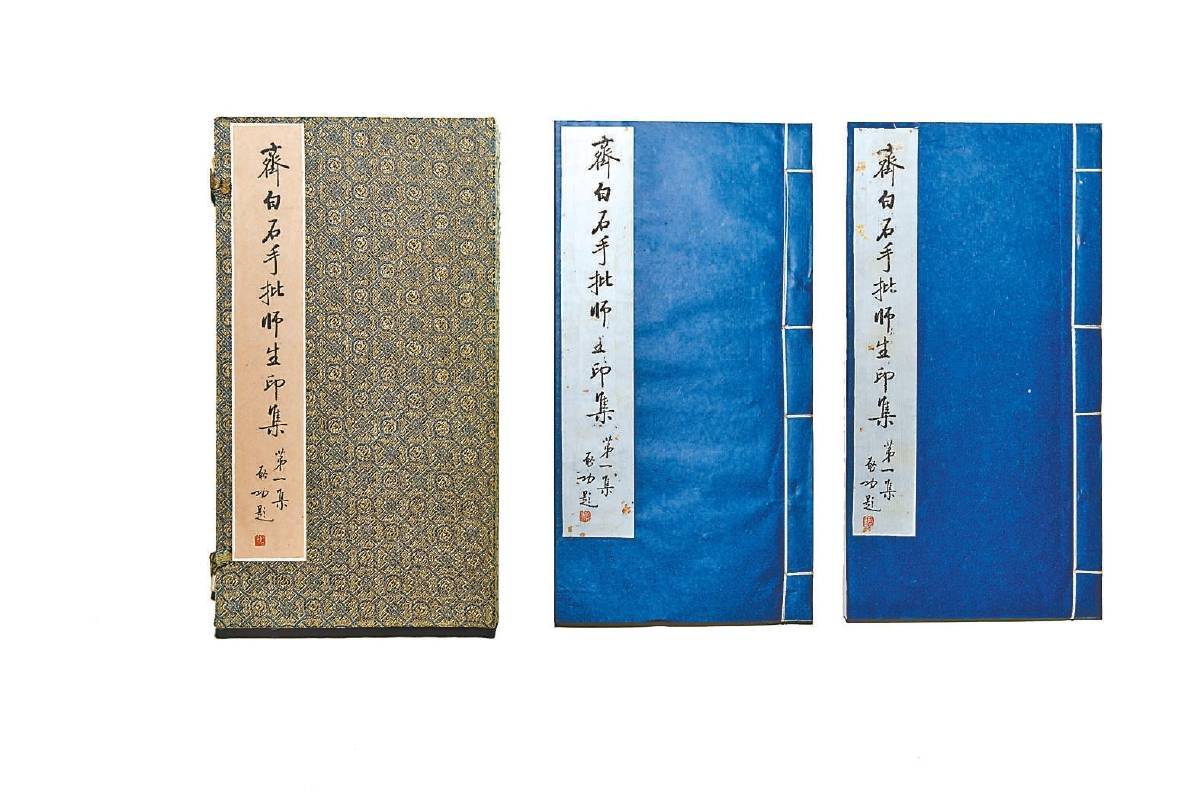 齊白石手批师生印集
第一集
启功题
齊白石手批师生印集
第一集
启功题
齊白石手批师生印集
第一集
启功题